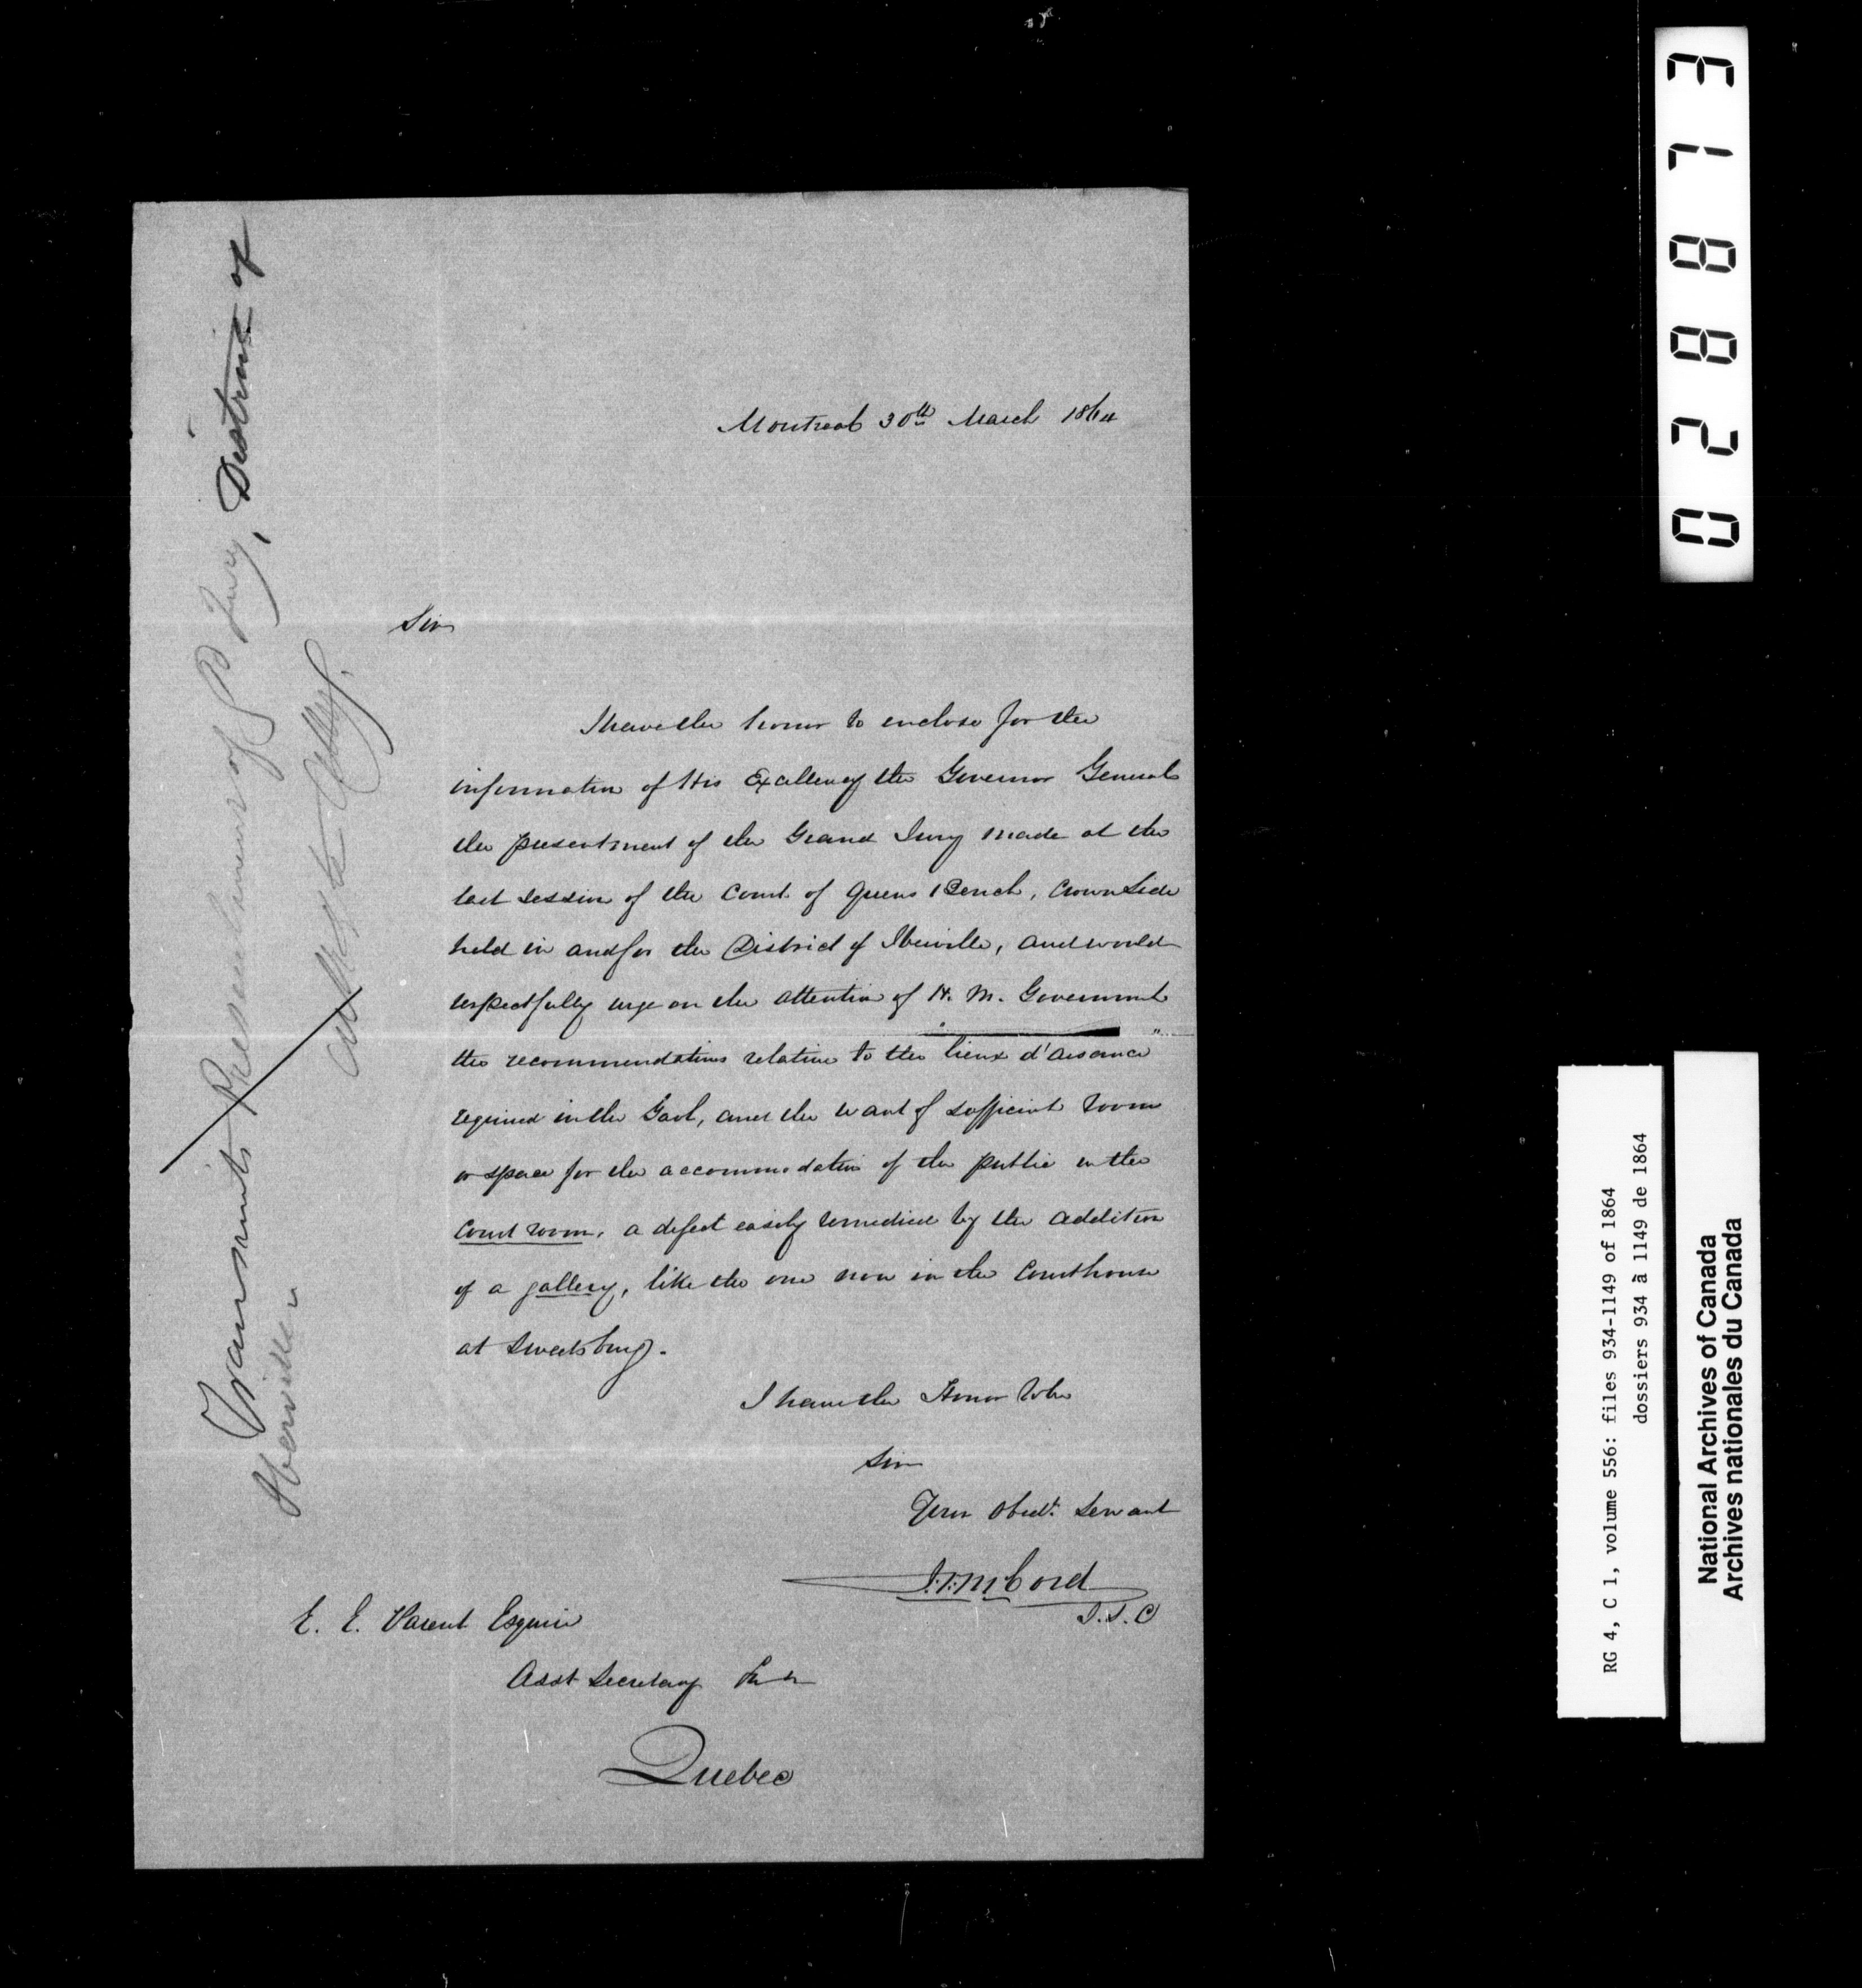 Montreal 30th March 1864
Sir
I have the honor to enclose for the
information of His Excellency the Governor General
the presentment of the Grand Jury made at the
last session of the Court of Queens Bench, Crown Side
held in and for the District of Iberville, and would
respectfully urge on the attention of H. M. Government
the recommendations relative to the lieux d'aisance"
required in the Gaol, and the want of sufficient room
or space for the accommodation of the public in the
Court room, a defect easily remedied by the addition
of a gallery, like the one now in the Courthouse
at Sweetsburg.
I have the Honor to be
Sir
Your Obedt. Servant
J.S. McCord
J.S.C
E. E. Parent Esquire
Asst Secretary
Quebec
Transmits Presentment of G Jury, District of
Iberville
028873
RG 4, C 1, volume 556: files 934-1149 of 1864
dossiers 934 à 1149 de 1864
National Archives of Canada
Archives nationales du Canada